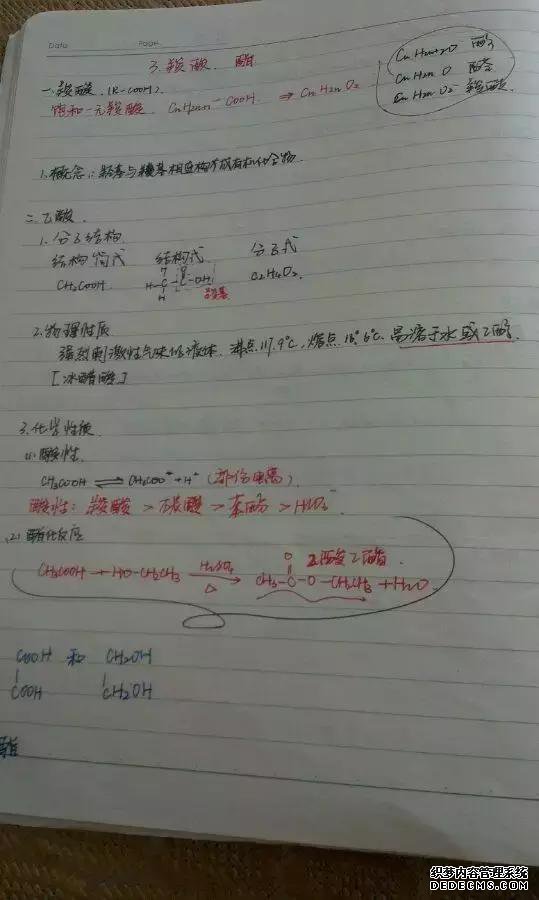 Date Page
3. 羧酸 酯
一. 羧酸 (R-COOH).
饱和一元羧酸 CnH2n+1-COOH ⇒ CnH2nO2
CnH2n+2O 醇
CnH2nO 醛
CnH2nO2 羧酸
1. 概念: 烃基与羧基相连构成有机化合物
二. 乙酸.
1. 分子结构
结构简式 结构式 分子式
CH3COOH C2H4O2.
羧基
2. 物理性质
强烈刺激性气味液体. 沸点117.9℃, 熔点16.6℃. 易溶于水或乙醇.
[冰醋酸]
3. 化学性质
(1) 酸性.
CH3COOH ⇌ CH3COO⁻ + H⁺ (部份电离)
酸性: 羧酸 > 碳酸 > 苯酚 > HCO3⁻
(2) 酯化反应
CH3COOH + HO-CH2CH3 H2SO4 △ → CH3-C-O-CH2CH3 + H2O
O
乙酸乙酯.
COOH 和 CH2OH
COOH CH2OH
酯
织梦内容管理系统
DEDECMS.COM